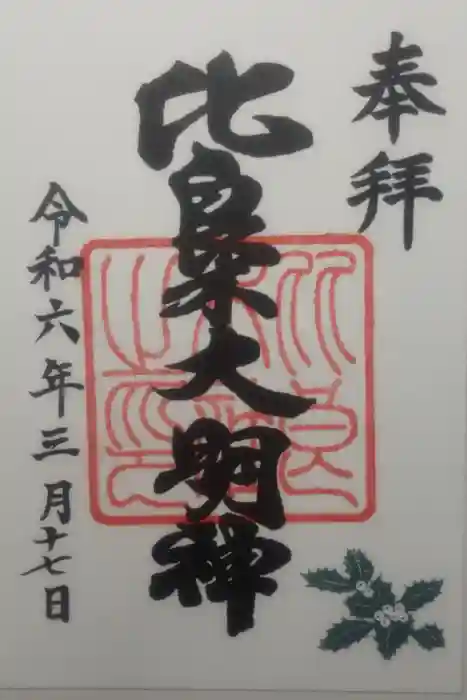 奉拝
比良木大明神
令和六年三月十七日